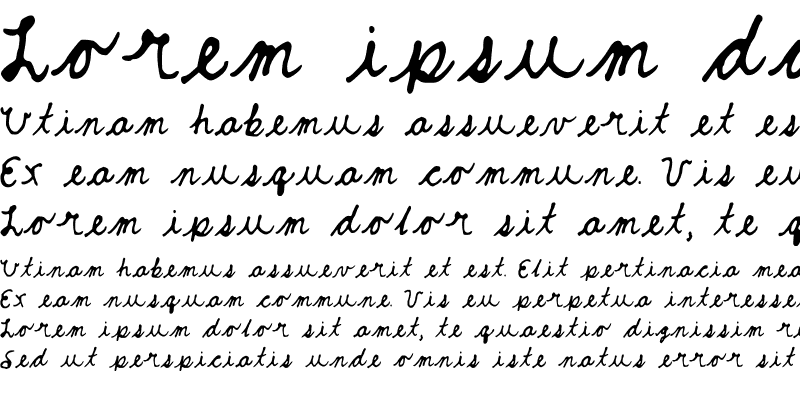 Lorem ipsum do
Utinam habemus assueverit et es
Ex eam nusquam commune. Vis eu
Lorem ipsum dolor sit amet, te q
Utinam habemus assueverit et est. Elit pertinacia mea
Ex eam nusquam commune. Vis eu perpetua interesse
Lorem ipsum dolor sit amet, te quaestio dignissim r
Sed ut perspiciatis unde omnis iste natus error sit